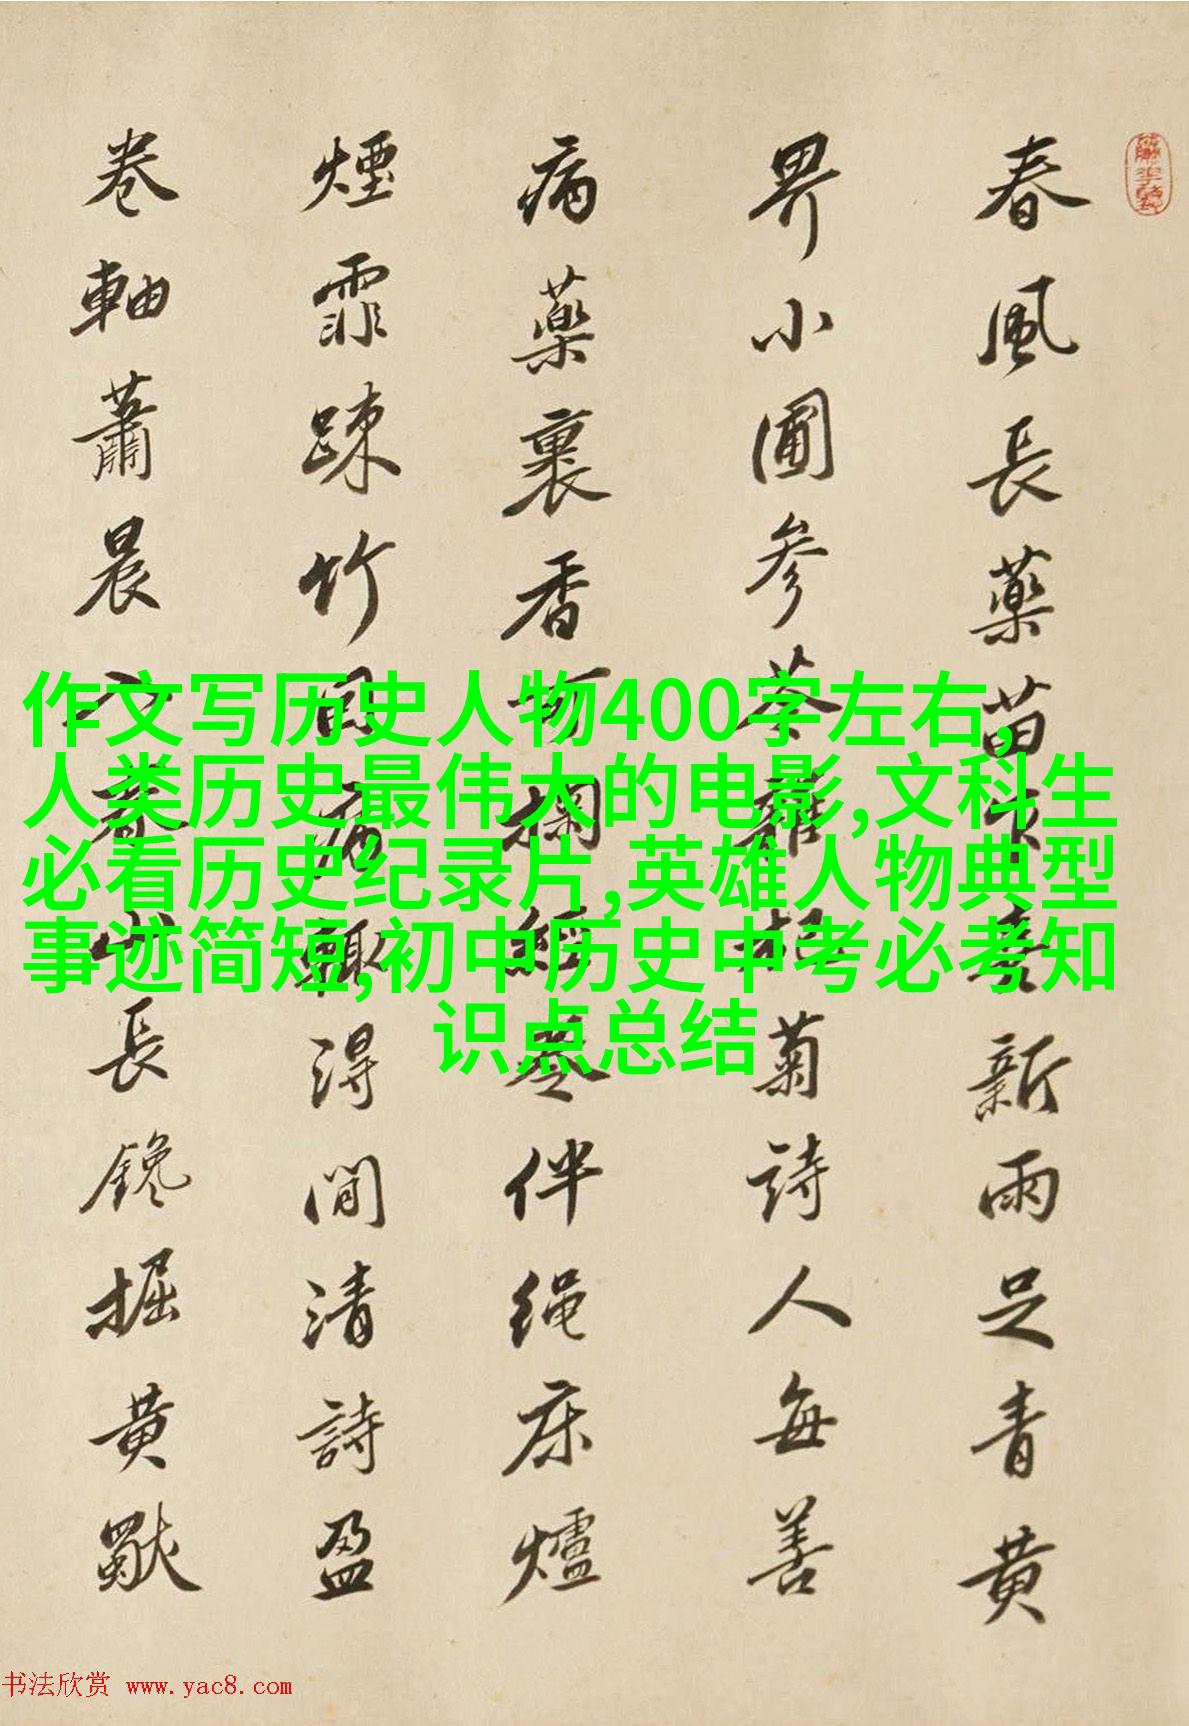 春風長藥苗新雨足青黄
畀小圃參苓雜杞菊詩人每善
病藥裹香可經卷伴绳床爐
煙霏踈竹回得閒清詩盈
卷軸蕭晨入春山長鑱掘黄
作文写历史人物400字左右,
人类历史最伟大的电影,文科生
必看历史纪录片,英雄人物典型
事迹简短,初中历史中考必考知
识点总结
书法欣赏 www.yac8.com